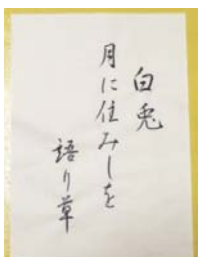 白兎
月に住みしを
語り草